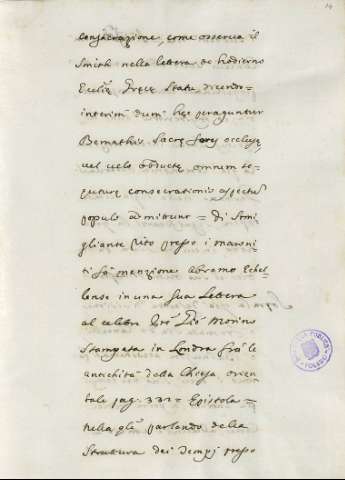 14
consacrazione, come osserva il
Smith nella lettera de hodierno
Eccliæ Græcæ Statu, dicendo=
interim dum hæc peraguntur
Bemathis Sacræ fores occlusæ,
vel velo obductæ omnem te=
queturæ consecrationis aspectũ
populo admittunt = di Simi
gliante rito presso i maroni
ti fà menzione Abramo Echel
lense in una sua Lettera
al celebre Gio: Morino
Stampata in Londra frà le
antichità della Chiesa orien
tale pag. 332 = Epistola =
nella qle parlando della
Struttura dei Tempj presso